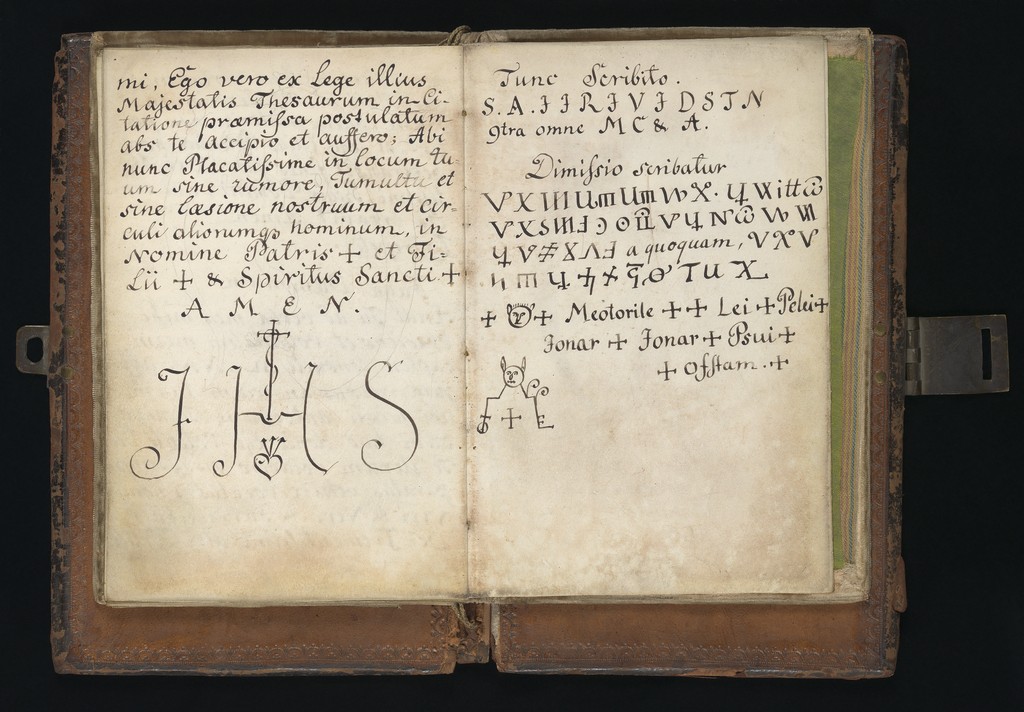 mi, Ego vero ex Lege illius
Majestatis Thesaurum in Ci-
tatione præmissa postulatum
abs te accipio et auffero; Abi
nunc Placatissime in locum tu-
um sine rumore, Tumultu et
sine læsione nostruum et cir-
culi aliorumqs hominum, in
Nomine Patris + et Fi-
Lii + & Spiritus Sancti +
A M E N.
J H S
Tunc Scribito.
S. A. J J R J V J D S T N
9tra omne M C & A.
Dimissio scribatur
a quoquam,
+ + Meotorile + + Lei + Pelei +
Jonar + Jonar + Psui +
+ Offtam. +